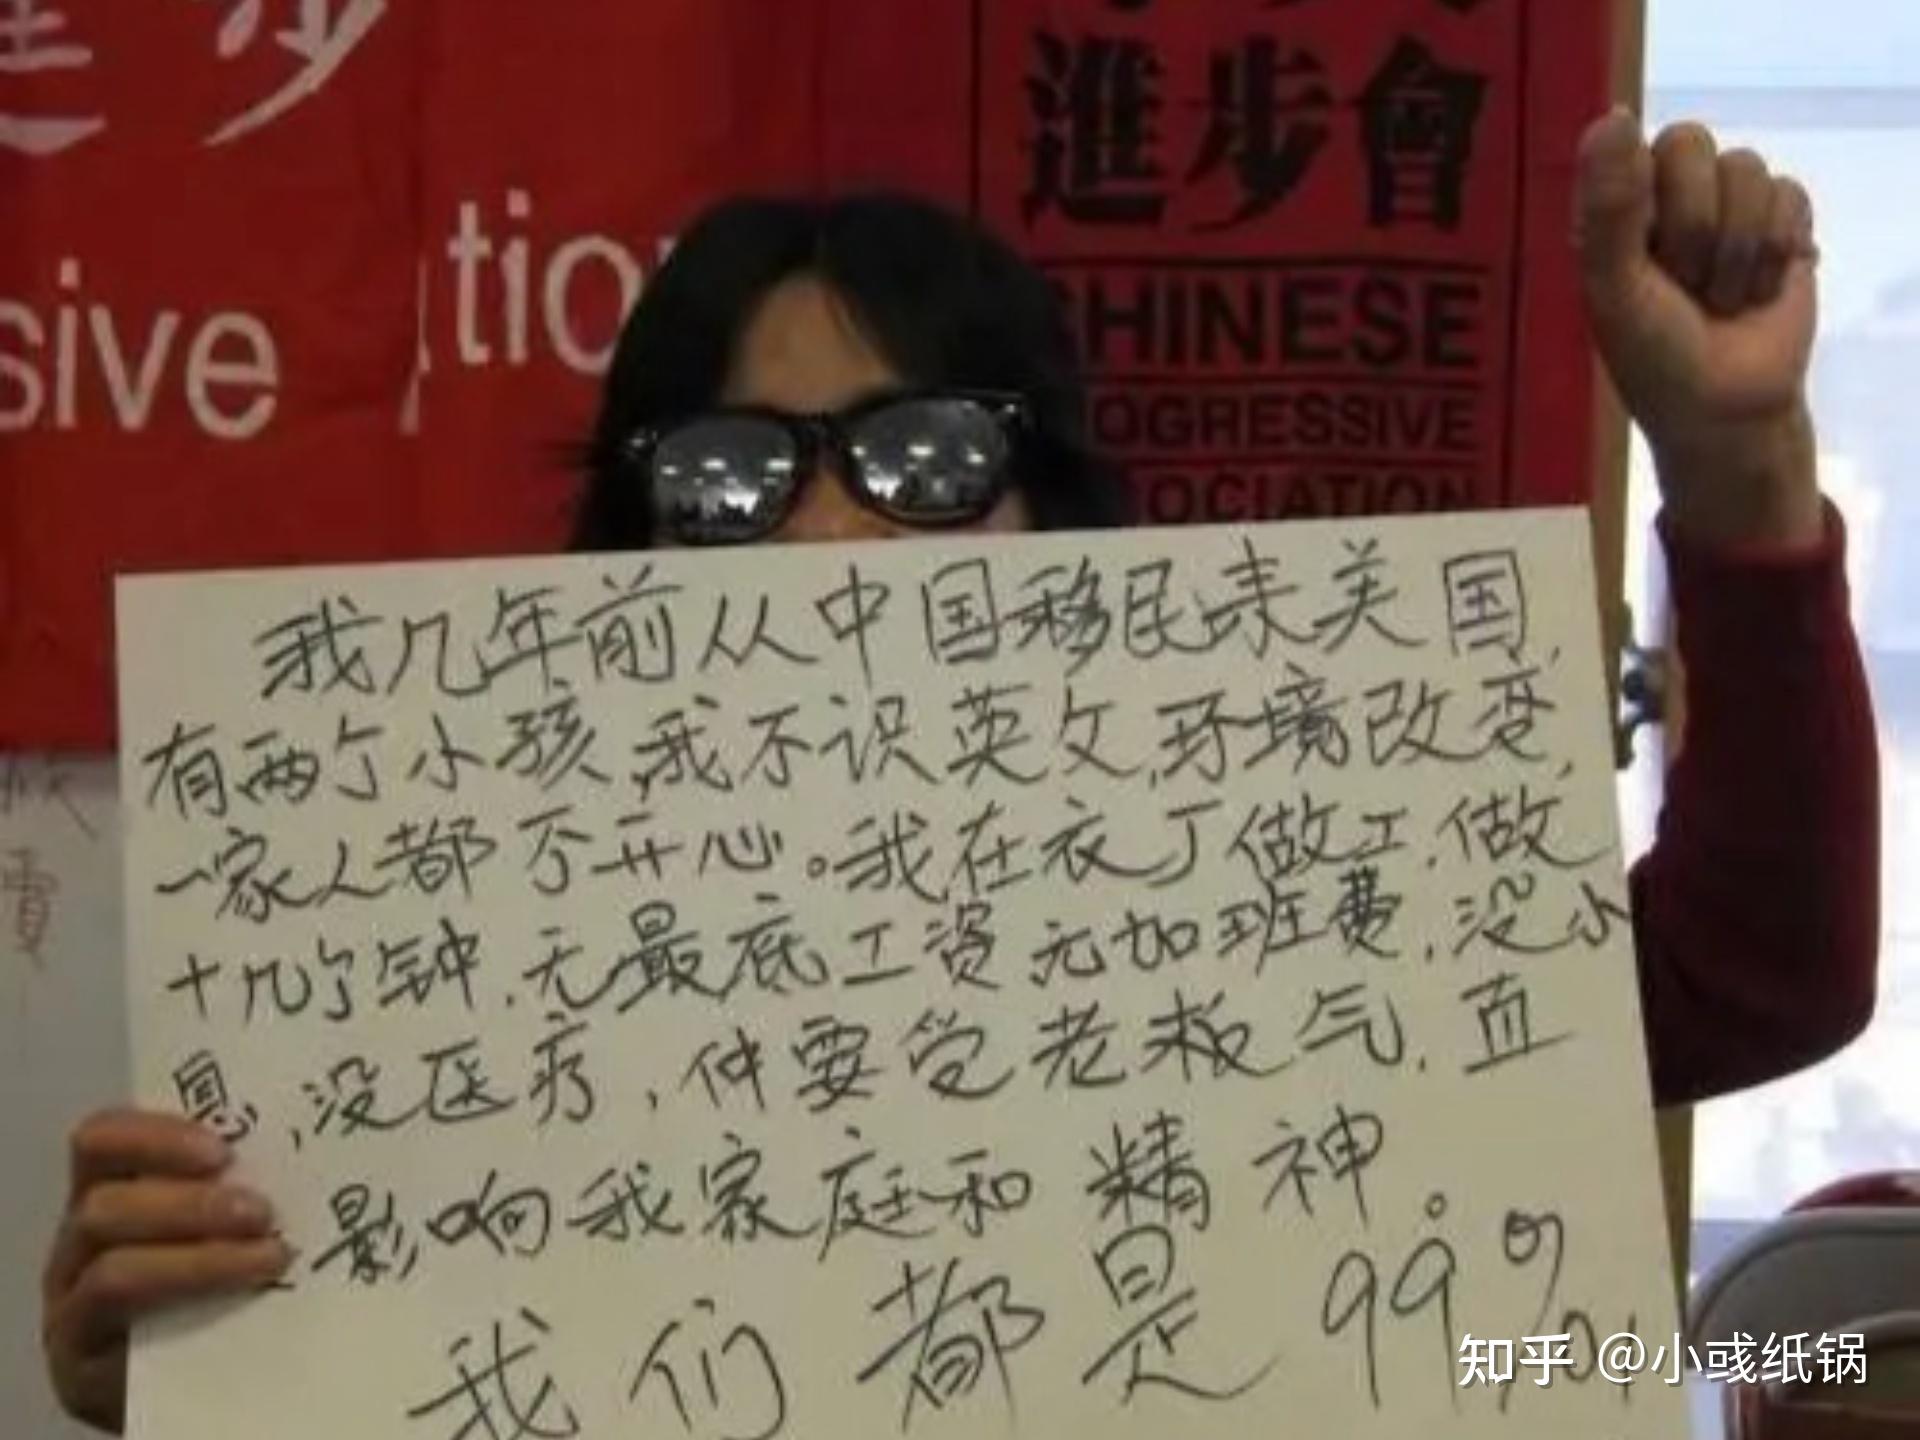 進步
進步會
sive
tio
HINESE
OGRESSIVE
OCIATION
我几年前从中国移民来美国,
有两个小孩,我不识英文,环境改变,
一家人都不开心。我在衣厂做工,做
十几个钟,无最底工资无加班费,没小
息,没医疗,仲要受老板气,直
影响我家庭和精神。
我们都是99%
知乎 @小彧纸锅